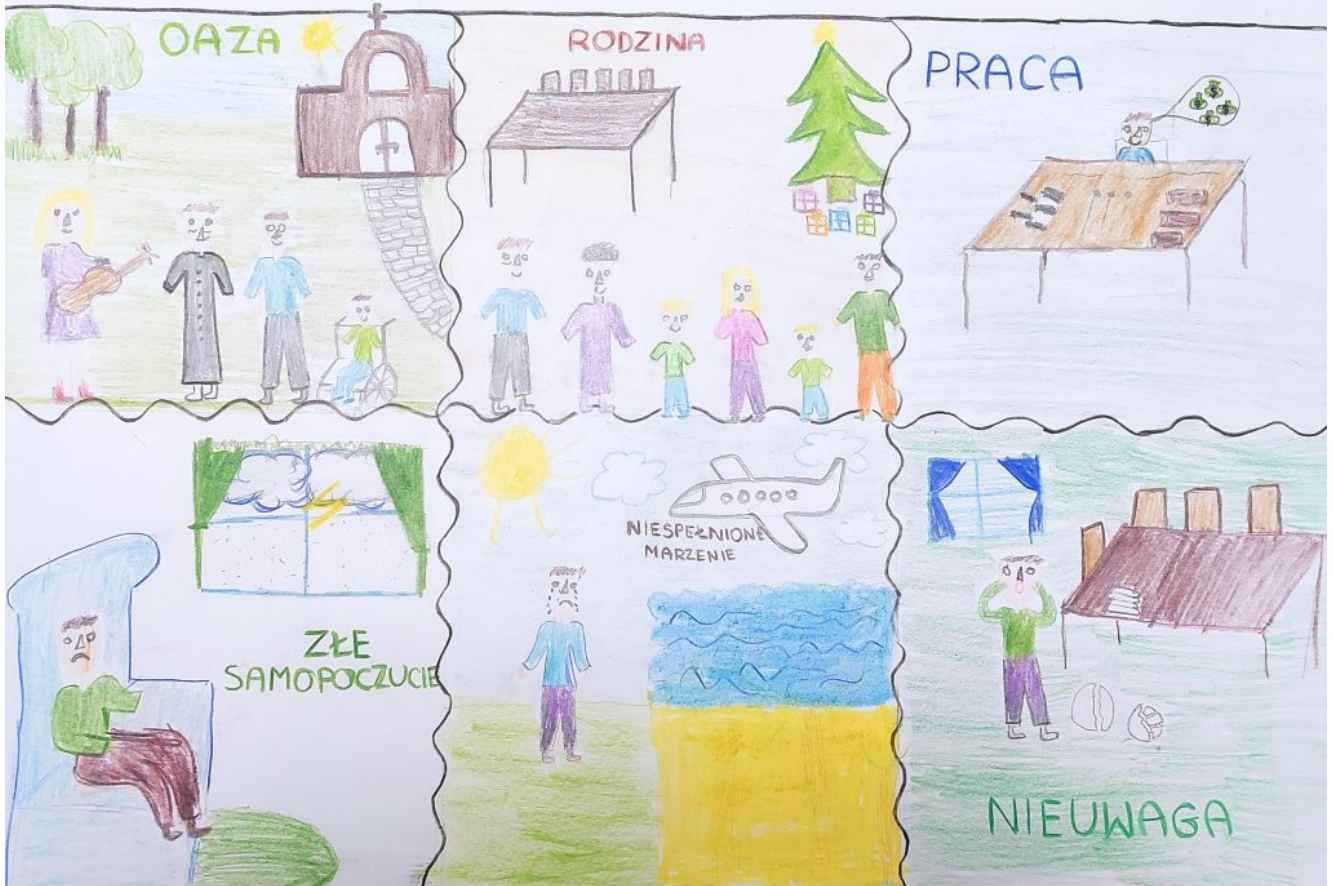 OAZA
RODZINA
PRACA
ZŁE
SAMOPOCZUCIE
NIESPEŁNIONE
MARZENIE
NIEUWAGA